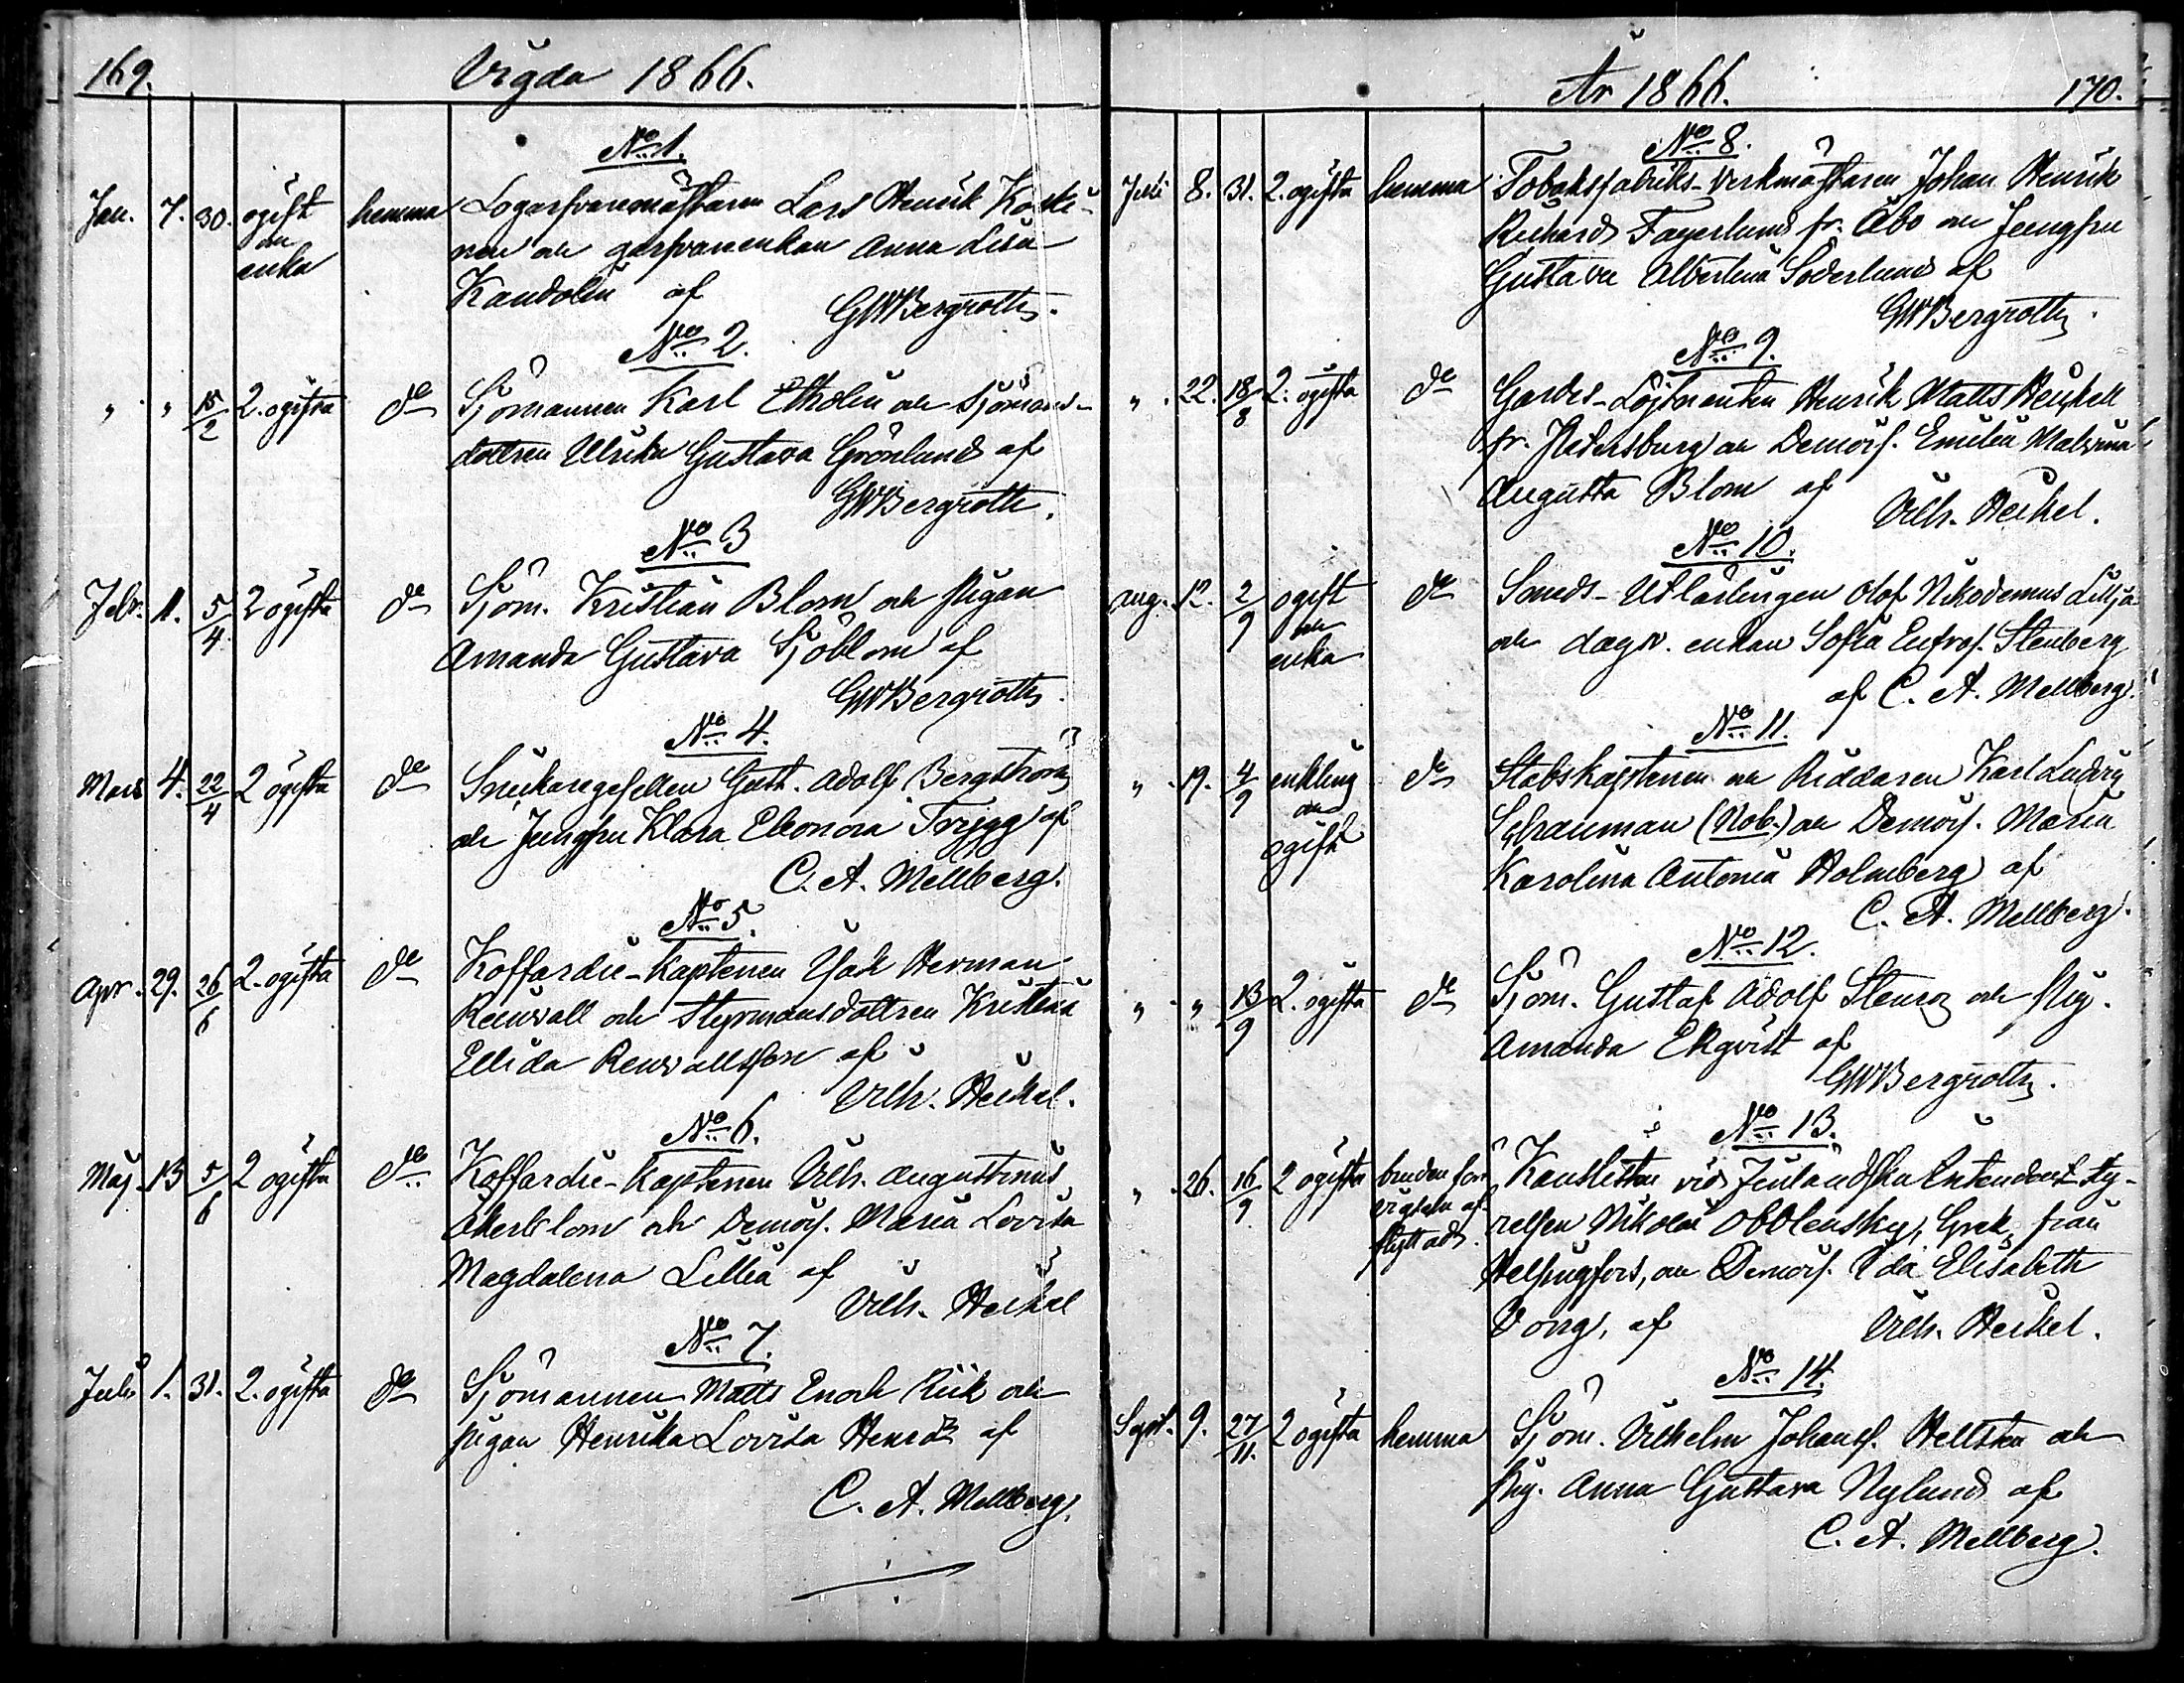 169. Vigda 1866.
No 1.
Jan. 7. 30. ogift och enka hemma Logarfvaremästaren Lars Henrik Koski-
nen och garfvareenkan Anna Lisa
Kandolin af GWBergroth.
No 2.
" " 15/2 2. ogifta do Sjömannen Karl Etholin och Sjömans-
dottren Ulrika Gustava Grönlund af
GWBergroth.
No 3
Febr. 11. 5/4 2 ogifta do Sjöm. Kristian Blom och pigan
Amanda Gustava Sjöblom af
GWBergroth.
No 4.
Mars 4. 22/4 2 ogifta do Snickaregesellen Gust. Adolf Bergström
och Jungfru Klara Eleonora Trygg af
C. A. Mellberg.
No 5.
Apr. 29. 26/6 2. ogifta do Koffardie-Kaptenen Isak Herman
Renvall och Styrmansdottren Kristina
Ellida Renvall af
Vilh. Heikel.
No 6.
Maj 13 5/6 2 ogifta do Koffardie-Kaptenen Vilh. Augustinus
Åkerblom och Demois. Maria Lovisa
Magdalena Lillia af
Vilh. Heikel
No 7.
Juli 1. 31. 2. ogifta do Sjömannen Matts Enoch Riik och
pigan Henrika Lovisa af
C. A. Mellberg.
År 1866. 170.
No 8.
Juli 8. 31. 2. ogifta hemma Tobaksfabriks-Verkmästaren Johan Henrik
Richard Fagerlund fr. Åbo och Jungfru
Gustava Albertina Söderlund af
GWBergroth.
No 9.
" 22. 18/8 2. ogifta do Gardes-Löjtnanten Henrik Matts Heikell
fr. Petersburg och Demois. Emilia Malvina
Augusta Blom af Vilh. Heikel.
No 10.
Aug. 12. 2/9 ogift och enka do Olof Nikodemus Lillja
och dagk. enkan Sofia Eufros. Stenberg
af C. A. Mellberg.
No 11.
" 19. 4/9 enkling och ogift do Stabskaptenen och Riddaren Karl Ludvig
Schauman (Nob.) och Demois. Maria
Karolina Antonia Holmberg af
C. A. Mellberg.
No 12.
" " 13/9 2. ogifta do Sjöm. Gustaf Adolf Stenroz och pig.
Amanda Ekqvist af
GWBergroth.
No 13.
" 26. 16/9 2 ogifta bruden före vigseln afflyttad. Kanslisten vid Finländska Intendent-sty-
relsen Nikolai Obolensky, Grek, från
Helsingfors, och Demois. Ida Elisabeth
Dong, af Vilh. Heikel.
No 14.
Sept. 9. 27/11. 2 ogifta hemma Sjöm. Vilhelm Johanss. Hellsten och
Pig. Anna Gustava Nylund af
C. A. Mellberg.